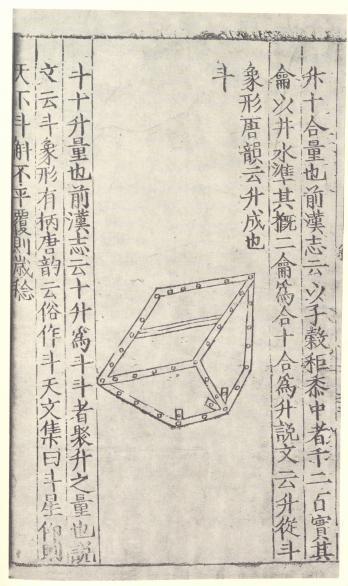 升十合量也前漢志云以子穀秬黍中者千二百實其
龠以井水準其概二龠爲合十合爲升説文云升從斗
象形唐韻云升成也
斗
斗十升量也前漢志云十升爲斗斗者聚升之量也説
文云斗象形有柄唐韵云俗作斗天文集曰斗星仰則
天下斗斛不平覆則歳稔